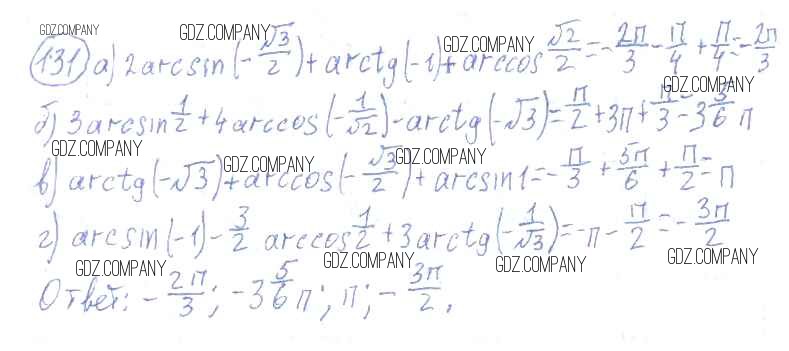 GDZ.COMPANY GDZ.COMPANY GDZ.COMPANY
131 а) 2arcsin(-√3/2)+arctg(-1)+arccos √2/2=-2π/3-π/4+π/4=-2π/3
GDZ.COMPANY
б) 3arcsin 1/2+4arccos(-1/√2)-arctg(-√3)=π/2+3π+π/3-3 5/6 π
GDZ.COMPANY GDZ.COMPANY GDZ.COMPANY
в) arctg(-√3)+arccos(-√3/2)+arcsin1=-π/3+5π/6+π/2=π
г) arcsin(-1)-3/2 arccos 1/2+3arctg(-1/√3)=-π-π/2=-3π/2
GDZ.COMPANY GDZ.COMPANY GDZ.COMPANY GDZ.COMPANY
Ответ: -2π/3; -3 5/6 π; π; -3π/2.